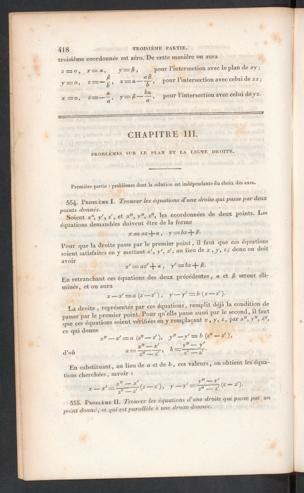 418 TROISIÈME PARTIE.
troisième coordonnée est zéro. De cette manière on aura
z = 0, x = α, y = β, pour l'intersection avec le plan de xy;
y = 0, z = — β/b, x = α — aβ/b, pour l'intersection avec celui de xz;
x = 0, z = — α/a, y = β — bα/a, pour l'intersection avec celui de yz.
CHAPITRE III.
PROBLÈMES SUR LE PLAN ET LA LIGNE DROITE.
Première partie: problèmes dont la solution est indépendante du choix des axes.
554. PROBLÈME I. Trouver les équations d'une droite qui passe par deux
points donnés.
Soient x', y', z', et x'', y'', z'', les coordonnées de deux points. Les
équations demandées doivent être de la forme
x = az + α, y = bz + β.
Pour que la droite passe par le premier point, il faut que ces équations
soient satisfaites en y mettant x', y', z', au lieu de x, y, z; donc on doit
avoir
x' = az' + α, y' = bz' + β.
En retranchant ces équations des deux précédentes, α et β seront éli-
minés, et on aura
x — x' = a (z — z'), y — y' = b (z — z').
La droite, représentée par ces équations, remplit déjà la condition de
passer par le premier point. Pour qu'elle passe aussi par le second, il faut
que ces équations soient vérifiées en y remplaçant x, y, z, par x'', y'', z'',
ce qui donne
x'' — x' = a (z'' — z'), y'' — y' = b (z'' — z'),
d'où a = (x'' — x')/(z'' — z'), b = (y'' — y')/(z'' — z').
En substituant, au lieu de a et de b, ces valeurs, on obtient les équa-
tions cherchées, savoir:
x — x' = (x'' — x')/(z'' — z') (z — z'), y — y' = (y'' — y')/(z'' — z') (z — z').
555. PROBLÈME II. Trouver les équations d'une droite qui passe par un
point donné, et qui est parallèle à une droite donnée.